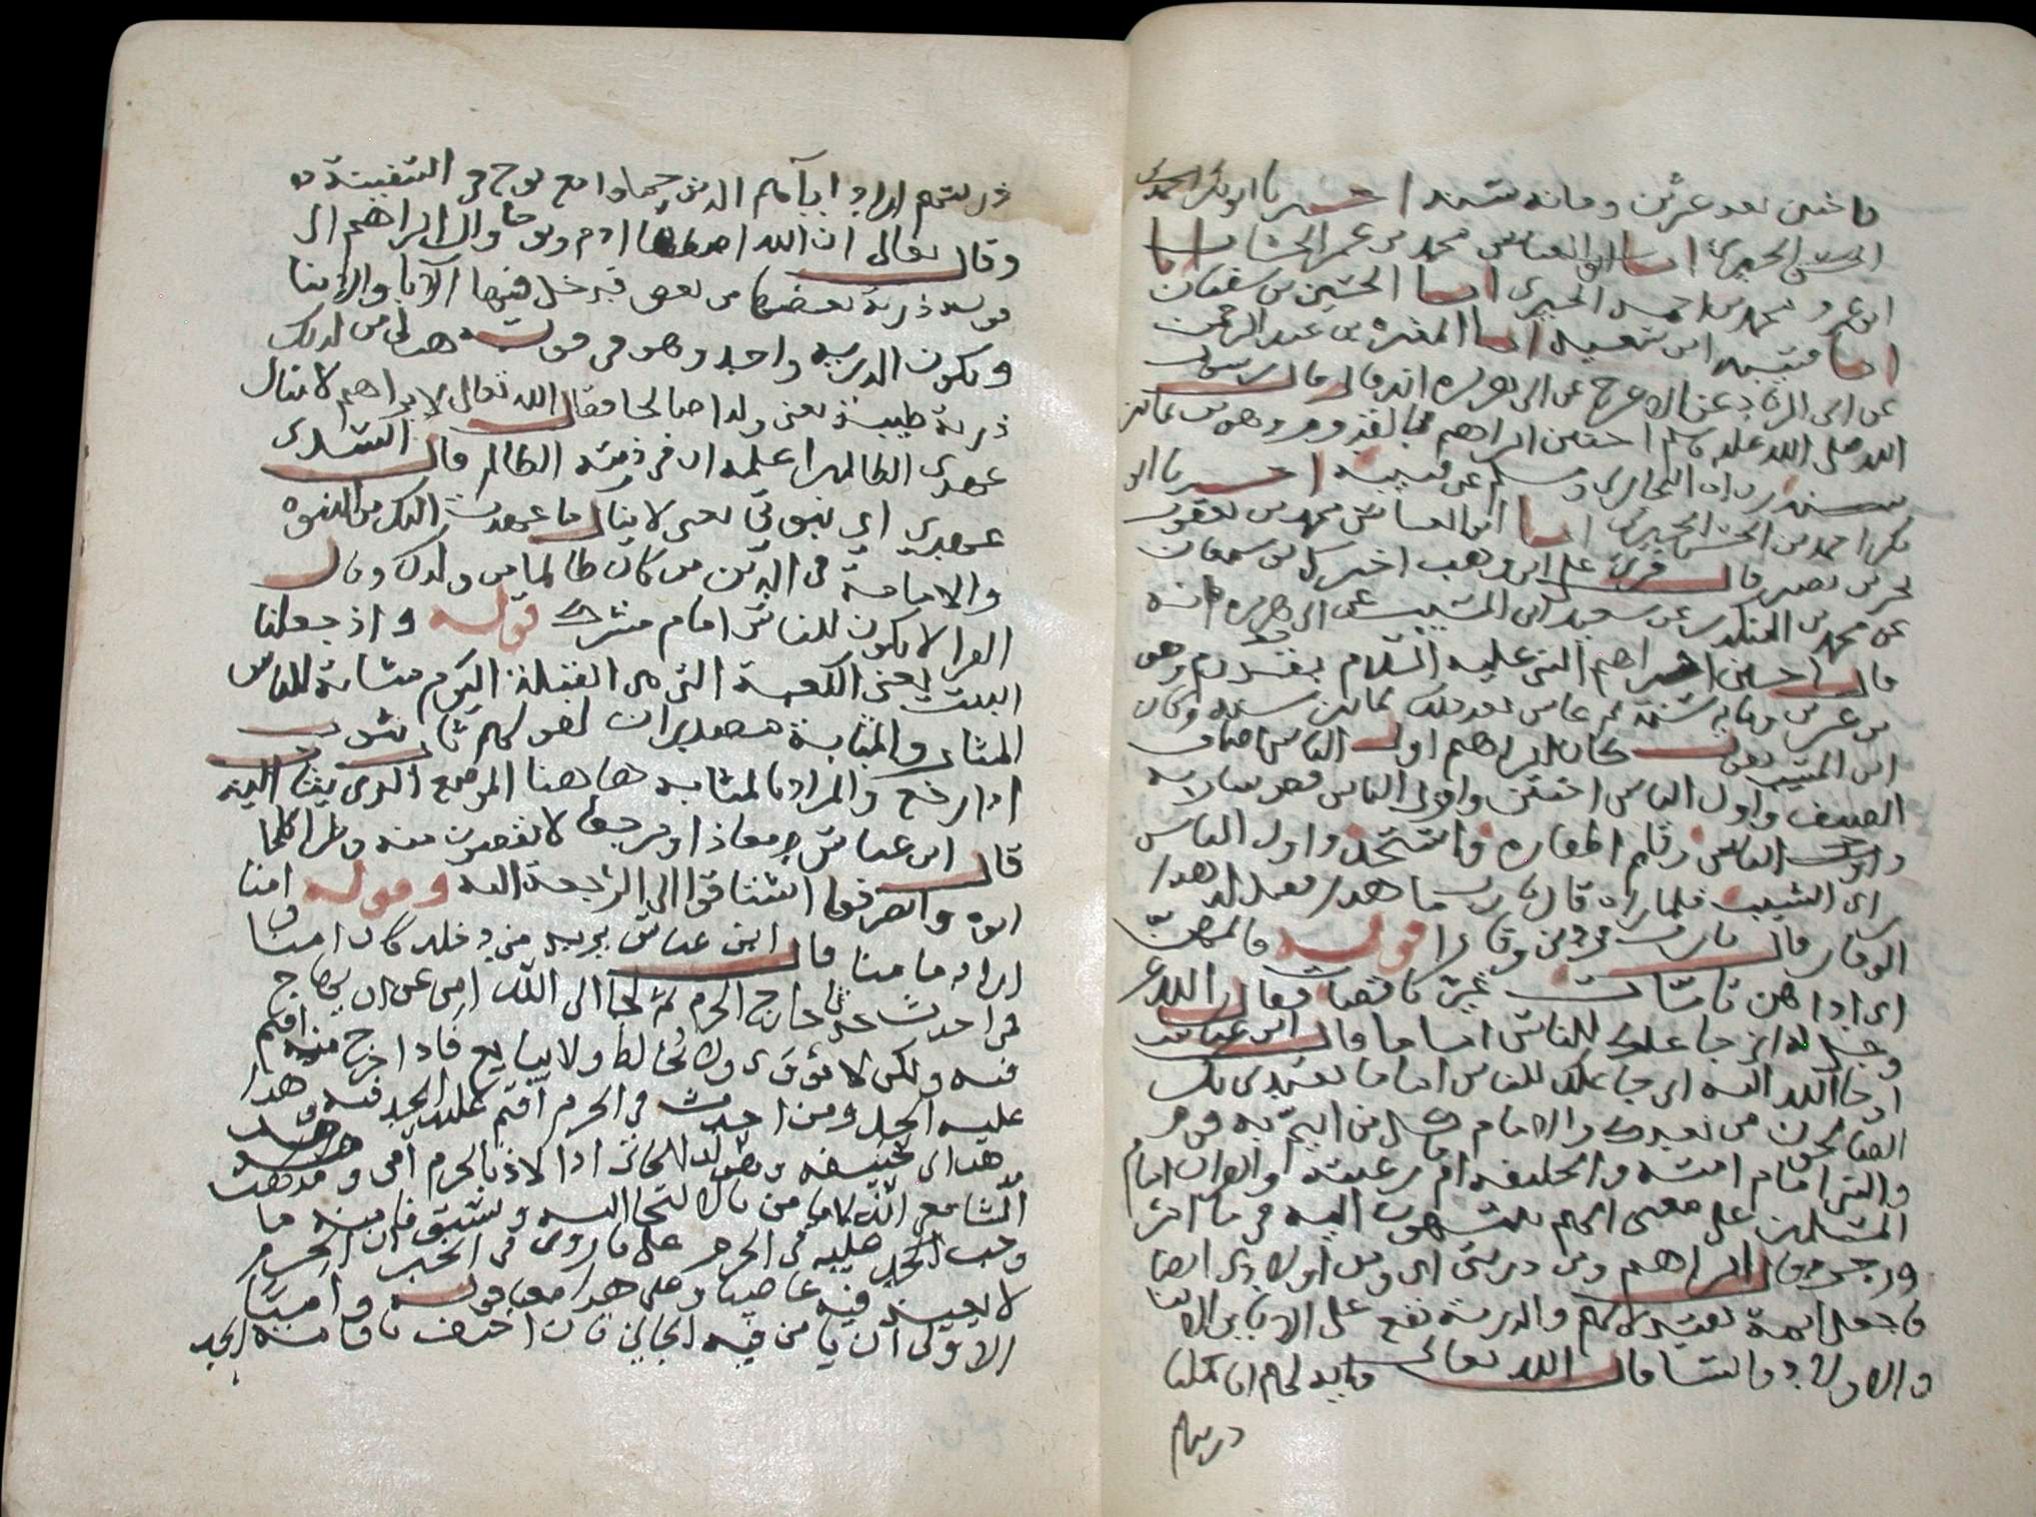 فاختتن بعد عشرين ومائة سنة اخبرنا ابو بكر احمد بن
الحسن الحيري انبا ابو العباس محمد بن عمر انبا
ابو عمرو محمد بن احمد الحيري انبا الحسين بن سفيان
انبا قتيبة ابن سعيد انبا المغيرة بن عبد الرحمن
عن ابي الزناد عن الاعرج عن ابي هريره انه قال قال رسول
الله صلى الله عليه وسلم اختتن ابراهيم بالقدوم وهو بن ثمانين
سنة رواه البخاري ومسلم عن قتيبة اخبرنا ابو
بكر احمد بن الحسن الحيري انبا ابو العباس محمد بن يعقوب
بحر بن نصر قال قرئ على ابن وهب اخبرك بن سمعان
عن محمد بن المنكدر عن سعيد ابن المسيب عن ابي هريره انه
قال اختتن ابراهيم النبي عليه السلام بقدوم وهو
بن عشرين ومايه سنة ثم عاش بعد ذلك ثمانين سنه وكان
ابن المسيب يقول كان ابراهيم اول الناس اضاف
الضيف واول الناس اختتن واول الناس قص شاربه
واول الناس قلم اظفاره واستحد واول الناس
راى الشيب فلما راه قال يا رب ما هذا قيل له هذا
الوقار قال يا رب زدني وقارا قوله فاتمهن
اي اداهن تامات غير ناقصات فقال الله عز
وجل له اني جاعلك للناس اماما قال ابن عباس
اوحا الله اليه اني جاعلك للناس اماما يقتدي بك
الصالحون من بعدك والامام كل من ائتم به قوم
والنبي امام امته والخليفه امام رعيته والقران امام
المسلمين على معنى انهم ينتهون اليه في ما امر
وزجر قال ابراهيم ومن ذريتي اي ومن اولادي ايضا
فاجعل ايمة يقتدى بهم والذرية تقع على الابا والابنا
والاولاد والنسا قال الله تعالى وايه لهم انا حملنا
ذريتهم
ذريتهم اراد اباهم الذين حملوا مع نوح في السفينة
وقال تعالى ان الله اصطفا ادم ونوحا وال ابراهيم الى
قوله ذرية بعضها من بعض فدخل فيها الابا والابنا
وتكون الذريه واحدا وهو في قوله هب لي من لدنك
ذرية طيبة يعني ولدا صالحا فقال الله تعالى لابراهيم لا ينال
عهدي الظالمين اعلمه ان في ذريته الظالم قال السدي
عهدي اي نبوتي يعني لا ينال ما عهدت اليك من النبوه
والامامة في الدين من كان ظالما من ولدك وقال
الفرا لا يكون للناس امام مشرك قوله واذ جعلنا
البيت يعني الكعبة التي هي القبلة اليوم مثابة للناس
المثاب والمثابة مصدران لقولهم ثاب يثوب
اذا رجع والمراد بالمثابه هاهنا الموضع الذي يثاب اليه
قال ابن عباس معاذا ومرجعا لا يقضون منه وطرا كلما
اتوه وانصرفوا اشتاقوا الى الرجعة اليه وقوله امنا
اراد مامنا قال ابن عباس يريد من دخله كان امنا
فمن احدث حدثا خارج الحرم ثم لجا الى الله امن من ان يهاج
فيه ولكن لا يؤوى ولا يخالط ولا يبايع فاذا خرج منه اقيم
عليه الحد ومن احدث في الحرم اقيم عليه الحد فيه وهذا
مذهب ابي حنيفه يقول الجاني اذا لاذ بالحرم امن ومذهب
الشافعي انه لا يامن بالالتجا اليه ويستوفا منه ما
وجب الحد عليه في الحرم على ما روي في الخبر ان الحرم
لا يعيذ عاصيا وعلى هذا معنى قوله وامنا
الاولى ان يامن فيه الجاني فان اخيف باقامة الحد